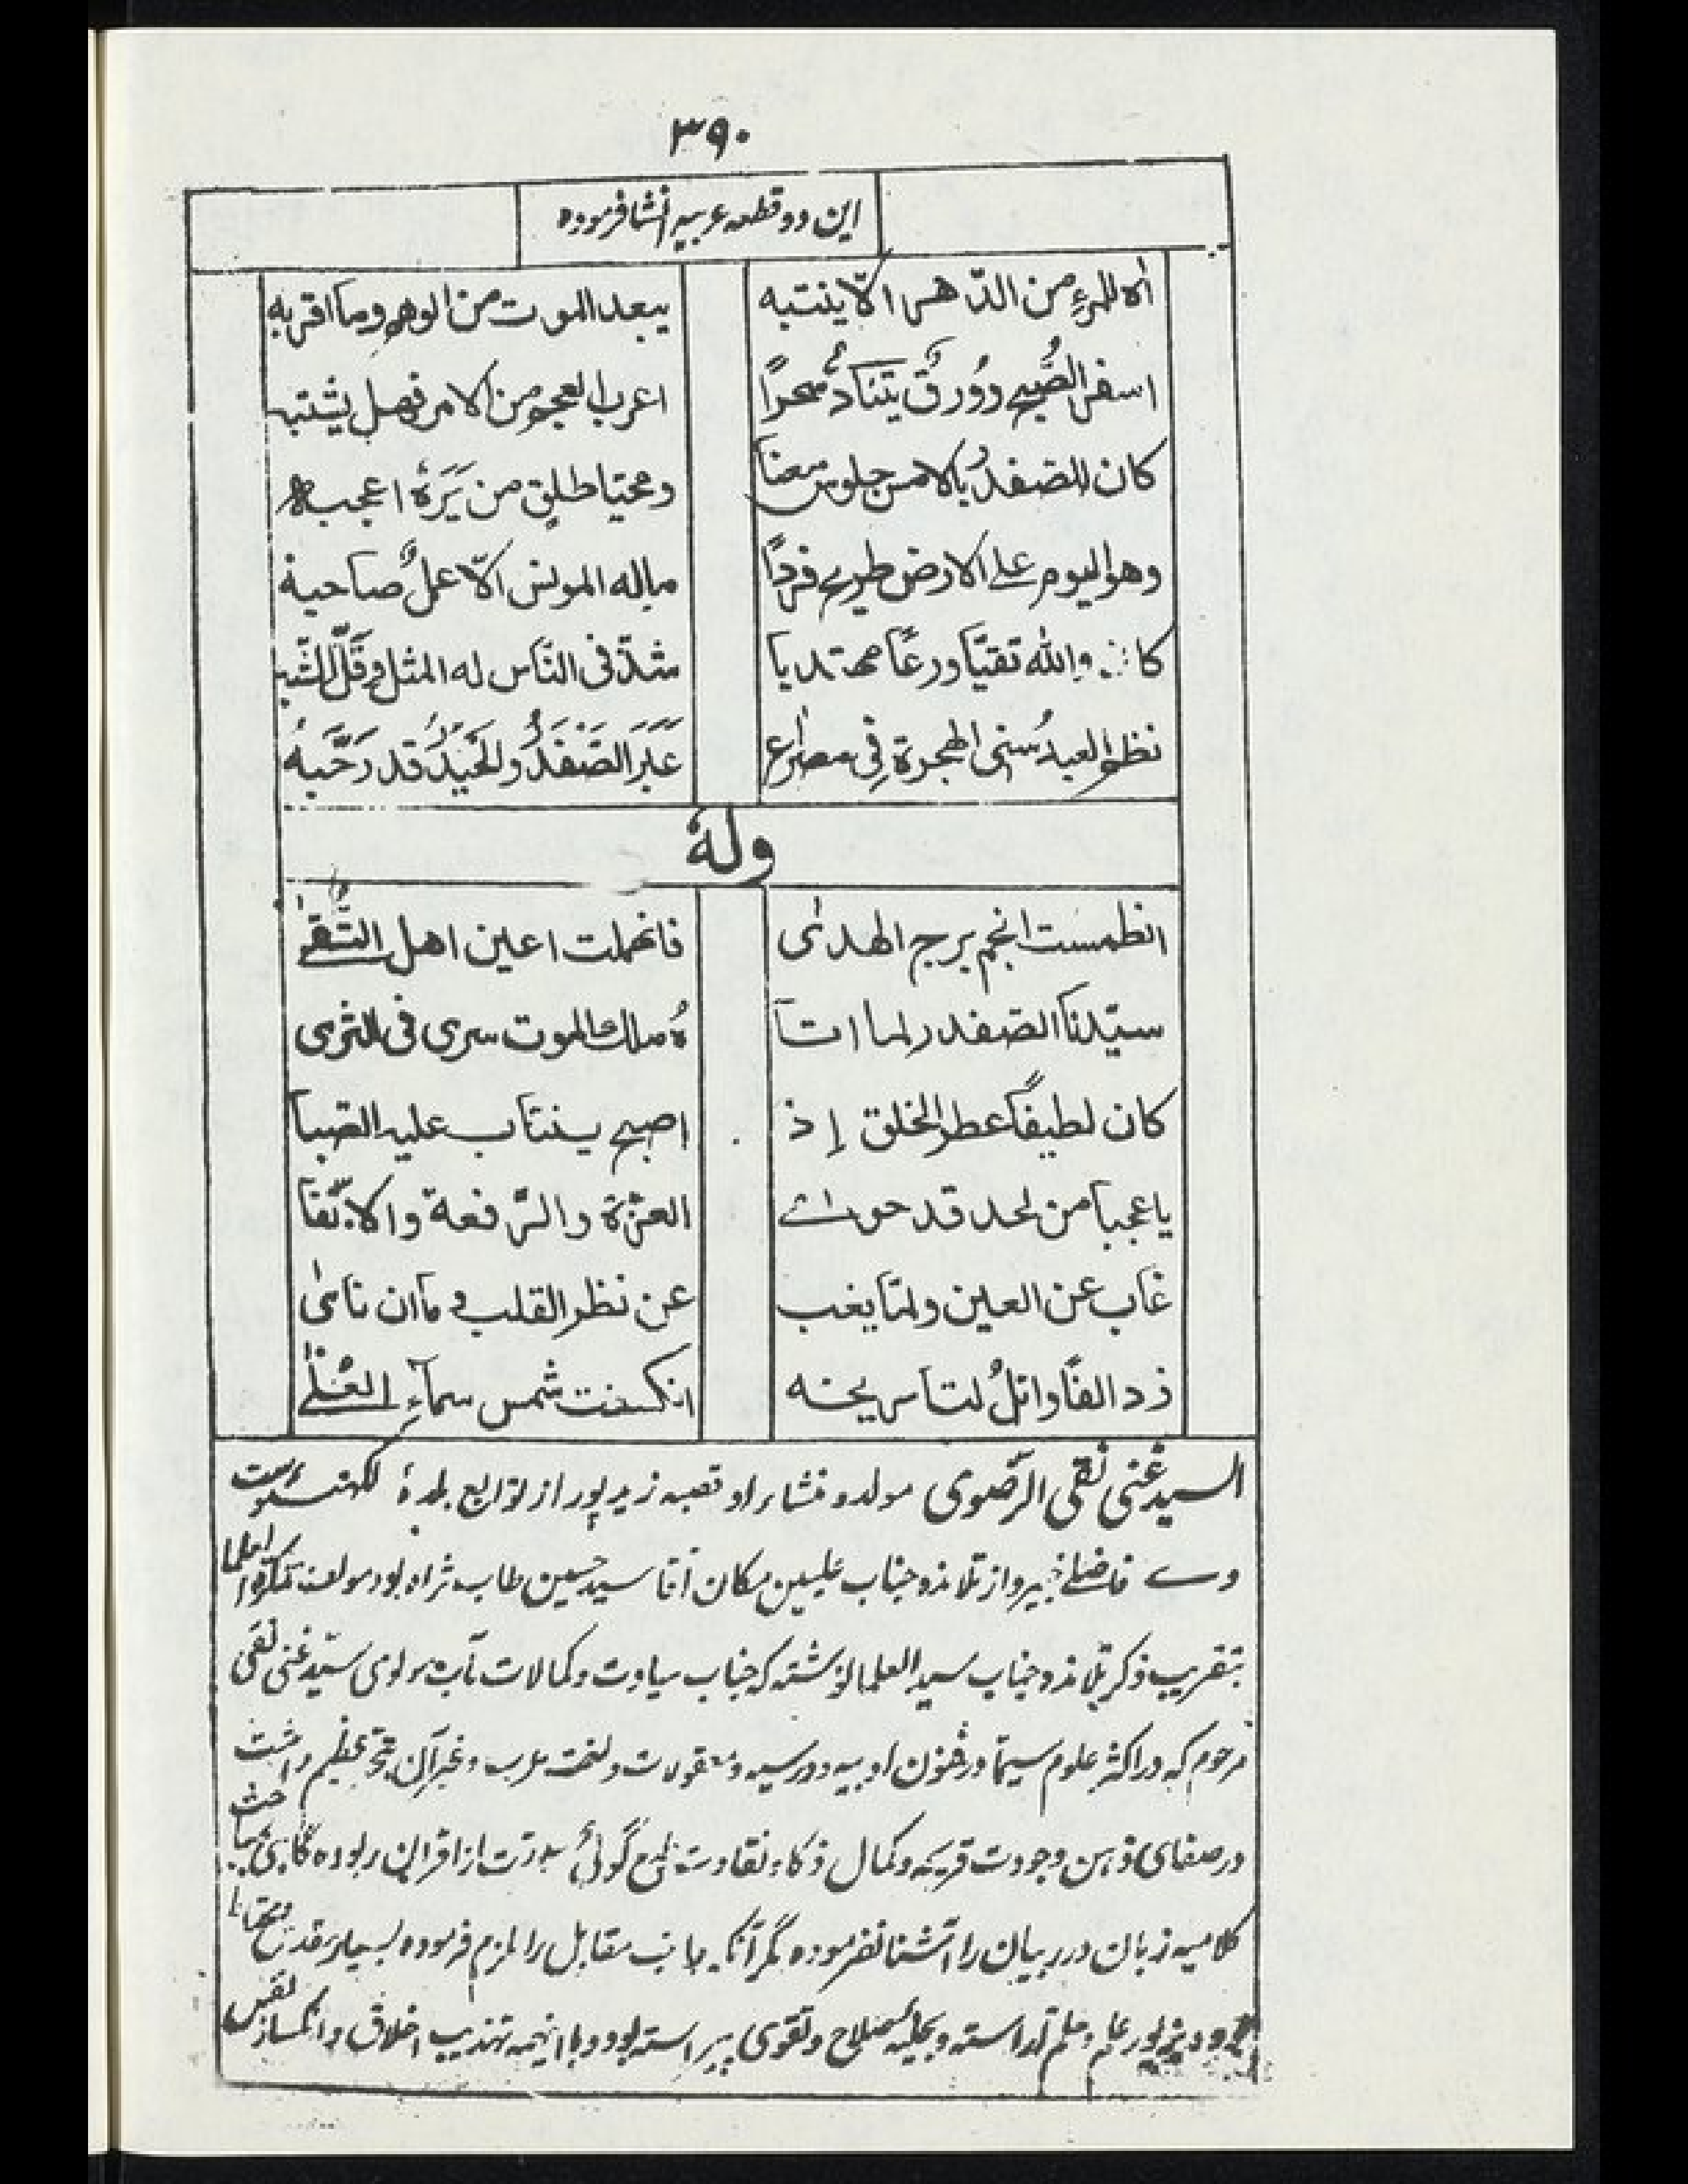 ۳۹۰
این دو قطعه عربیه انشا فرموده
اٰه للمرءِ من الدّهر الّا ینتبه
یبعد الموت من الوهم وما اقربه
اسفر الصُّبح ووُرقٌ یتنادیٰ سحراً
اعرب العجم من الامر فهل یشتبه
کان للصفدرُ بالامس جلوس معنا
ومحیّا طلق من یَرَهُ اعجب به
وهو الیوم علی الارض طریح فرداً
ماله المونس الّا عملٌ صاحبه
کان والله تقیّا ورعاً مهتدیا
شذّ فی النّاس له المثل وقَلَّ الشّبه
نظم العبدُ سنی الهجرة فی مصراع
عَبَرَ الصَّفْدَرُ والخَیِّرُ قد رَحَّبَهُ
ولهٗ
انطمست انجم برج الهدیٰ
فانهملت اعین اهل التُّقیٰ
سیّدنا الصفدر لما اتا
هُ ملك الموت سری فی الثری
کان لطیفاً عطر الخلق إذ
اصبح ینتاب علیه الصبا
یا عجبا من لحد قد حوی
العزّة والرّفعة والاتّقا
غاب عن العین ولمّا یغب
عن نظر القلب وما ان نایٰ
زد الفاً واتلُ لتاریخه
انکسفت شمس سمآءِ العُلیٰ
السید غنی نقی الرّضوی مولد و منشاء او قصبه زید پور از توابع بلدهٔ لکهنو ست
وے فاضلے خبیر و از تلامذه جناب علیین مکان آقا سید حسین طاب ثراه بود مولف تذکرة العلما
بتقریب ذکر تلامذه جناب سید العلما نوشته که جناب سیادت و کمالات مآب مولوی سیّد غنی نقی
مرحوم که در اکثر علوم سیّما در فنون ادبیه و درسیه و معقولات و لغت عرب و غیر آن تبحّر عظیم داشت
در صفای ذهن و جودت قریحه و کمال ذکاء و نقاوت طبع گوئی سبقت از اقران ربوده گاهی بمباحث
کلامیه زبان در ربیان را آشنا نفرموده مگر آنکه جانب مقابل را ملزم فرموده بسیار مقدس
بزیور علم و حلم آراسته و بحلیه صلاح و تقوی پیراسته بود و با اینهمه تهذیب اخلاق و انکسار نفس